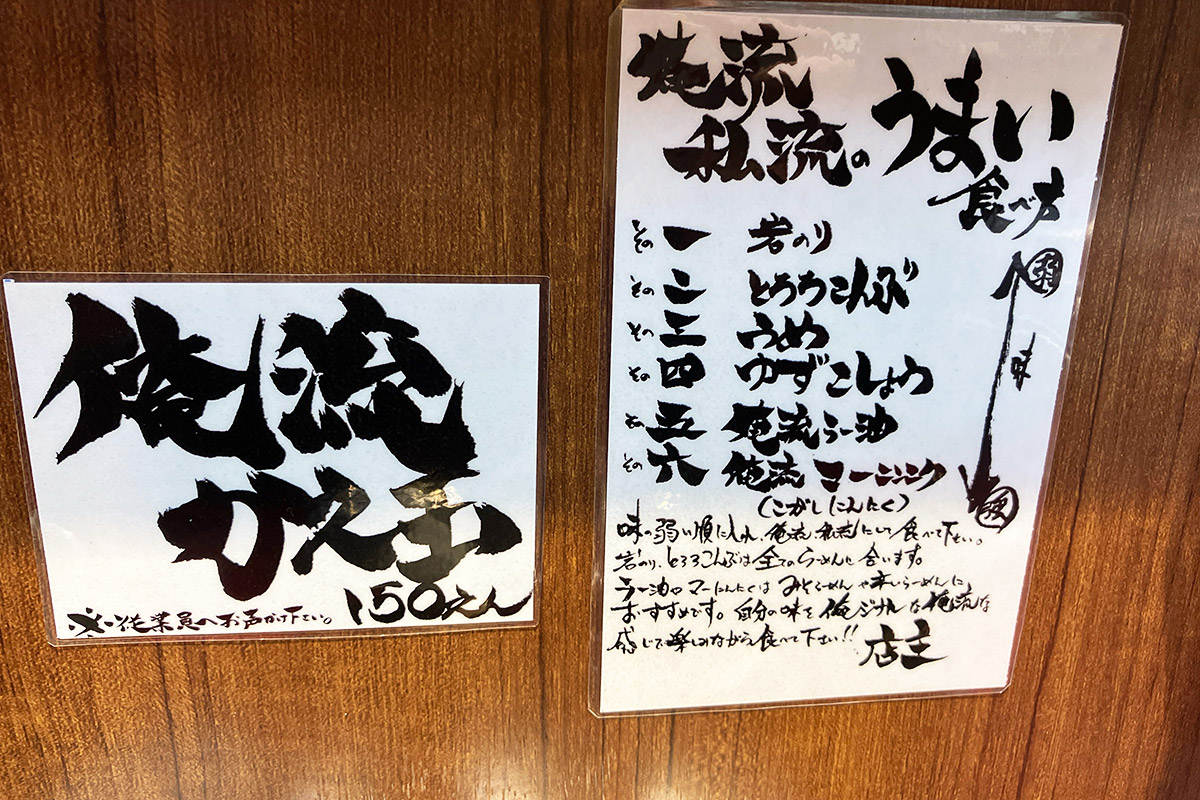 俺流
かえ玉
150えん
※従業員へお声かけ下さい。
俺流
私流の
うまい
食べ方
その一 岩のり
その二 とろろこんぶ
その三 うめ
その四 ゆずこしょう
その五 俺流らー油
その六 俺流マーニンニク
(こがしにんにく)
弱
味
強
味の弱い順に入れ、俺流、私流にして食べて下さい。
岩のり、とろろこんぶは全てのらーめんに合います。
ラー油やマーにんにくはみそらーめんや辛いらーめんに
おすすめです。自分の味を俺ジナルな俺流な
感じで楽しみながら食べて下さい!!
店主